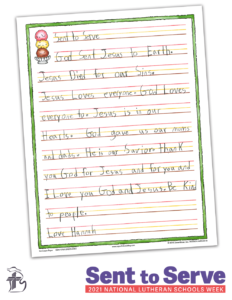 Sent to Serve
God Sent Jesus to Earth.
Jesus Died for our Sins.
Jesus Loves everyone. God loves
everyone to. Jesus is in our
Hearts. God gave us our moms
and dads. He is our Savior. Thank
you God for Jesus and for you and
I Love you God and Jesus. Be Kind
to people.
Love Hannah
Sent to Serve
2021 NATIONAL LUTHERAN SCHOOLS WEEK